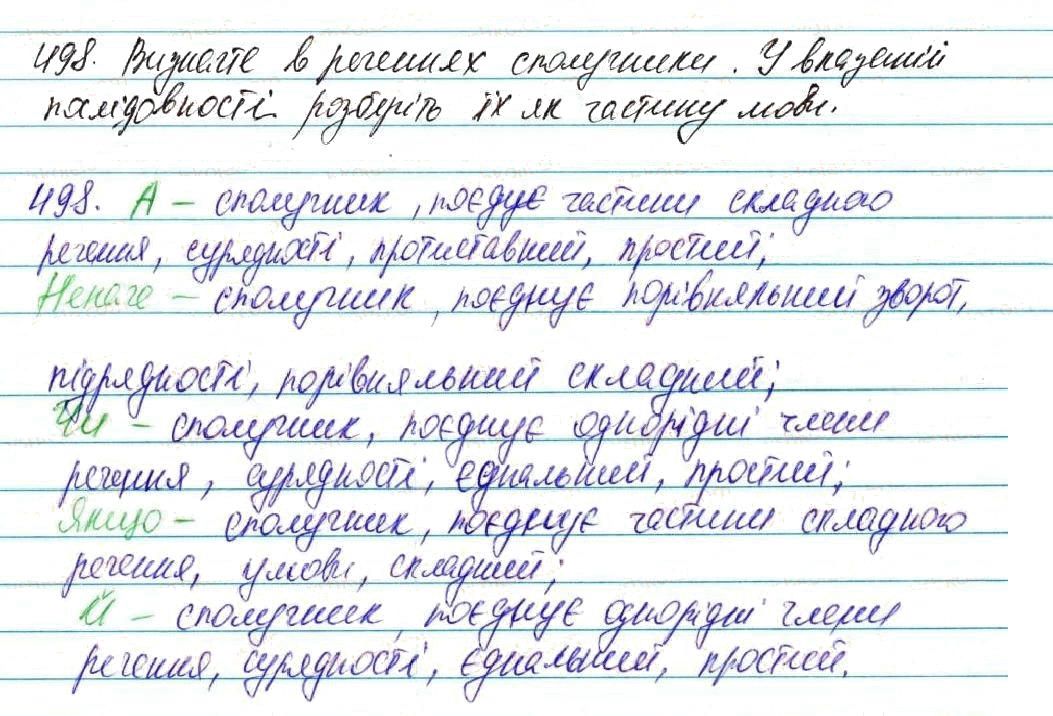 498. Визначте в реченнях сполучники. У вказаній
послідовності розберіть їх як частину мови.
498. А – сполучник, поєднує частини складного
речення, сурядності, протиставний, простий;
Неначе – сполучник, поєднує порівняльний зворот,
підрядності, порівняльний складний;
Чи – сполучник, поєднує однорідні члени
речення, сурядності, єднальний, простий;
Якщо – сполучник, поєднує частини складного
речення, умови, складний;
Й – сполучник, поєднує однорідні члени
речення, сурядності, єднальний, простий.